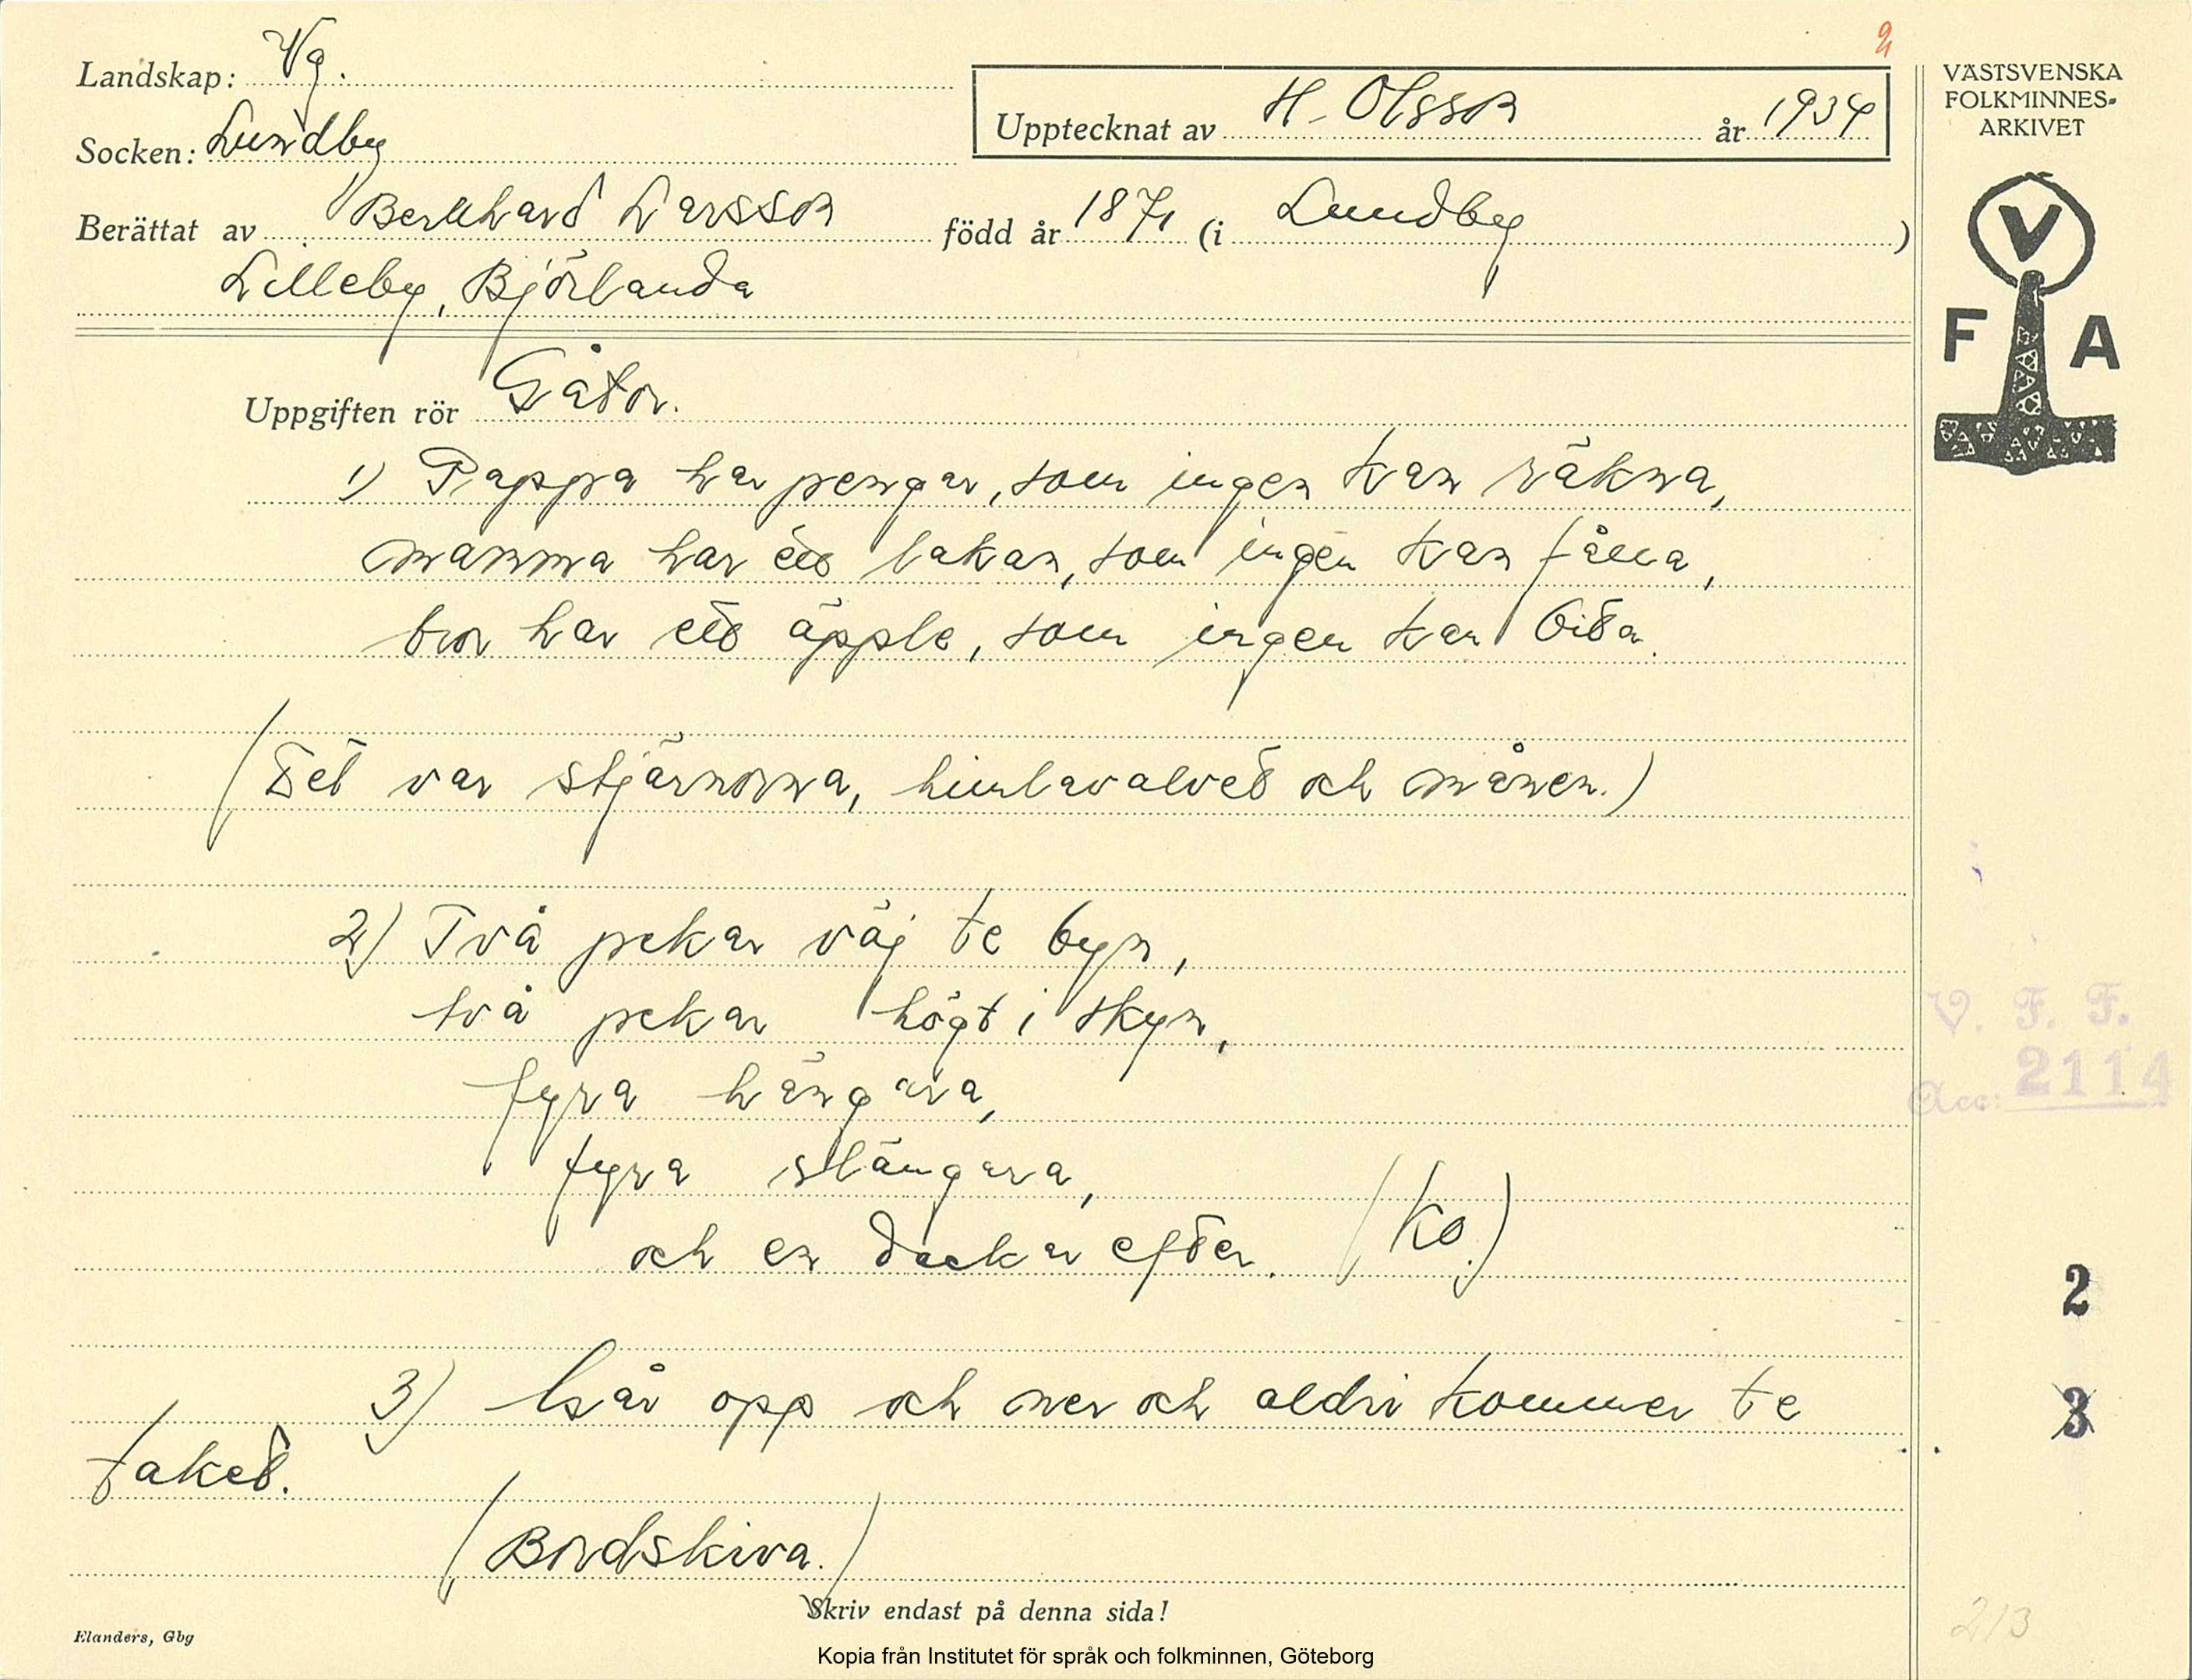 Landskap: Vg.
Socken: Lundby
Upptecknat av H. Olsson år 1934
Berättat av Bernhard Larsson född år 1871 (i Lundby)
Lilleby, Björlanda
Uppgiften rör Gåtor.
1) Pappa har pengar, som ingen kan räkna,
mamma har ett lakan, som ingen kan fålla,
bror har ett äpple, som ingen kan bita.
(Det var stjärnorna, himlavalvet och månen.)
2) Två pekar väj te byn,
två pekar högt i skyn,
fyra hängara,
fyra slängara,
och en efter. (Ko.)
3) Går opp och ner och aldri kommer te
taket.
(Bordskiva.)
Skriv endast på denna sida!
Elanders, Gbg
Kopia från Institutet för språk och folkminnen, Göteborg
VÄSTSVENSKA
FOLKMINNES-
ARKIVET
V
F A
V. F. F.
Acc: 2114
2
3
2/3